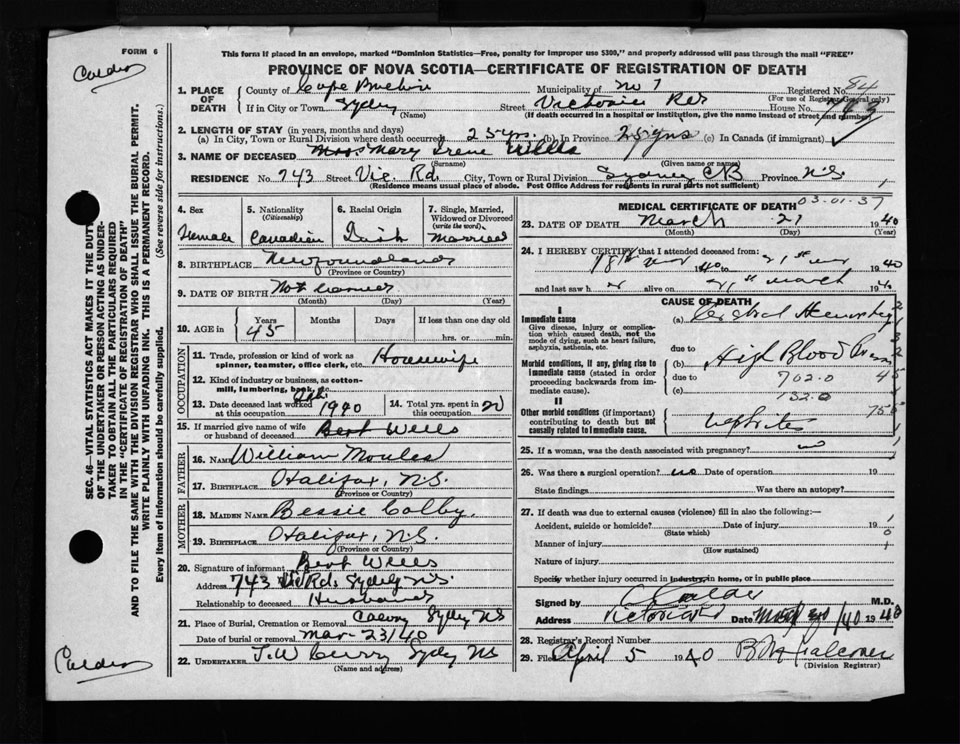 FORM 6
This form if placed in an envelope, marked "Dominion Statistics—Free, penalty for improper use $300," and properly addressed will pass through the mail "FREE"
PROVINCE OF NOVA SCOTIA—CERTIFICATE OF REGISTRATION OF DEATH
1. PLACE OF DEATH County of Cape Breton Municipality of No 7 Registered No 84
(For use of Registrar General only)
If in City or Town Sydney Street Victoria Rd House No. 743
(Name) (If death occurred in a hospital or institution, give the name instead of street and number)
2. LENGTH OF STAY (in years, months and days)
(a) In City, Town or Rural Division where death occurred 25 yrs. (b) In Province 25 yrs (c) In Canada (if immigrant)
3. NAME OF DECEASED Mary Irene Wells
(Surname) (Given name or names)
RESIDENCE No. 743 Street Vic. Rd. City, Town or Rural Division Sydney CB Province N.S.
(Residence means usual place of abode. Post Office Address for residents in rural parts not sufficient)
4. Sex Female
5. Nationality (Citizenship) Canadian
6. Racial Origin Irish
7. Single, Married, Widowed or Divorced (write the word) Married
8. BIRTHPLACE Newfoundland
(Province or Country)
9. DATE OF BIRTH Not
(Month) (Day) (Year)
10. AGE in Years 45 Months Days If less than one day old
hrs. or min.
OCCUPATION
11. Trade, profession or kind of work as spinner, teamster, office clerk, etc. Housewife
12. Kind of industry or business, as cotton-mill, lumbering, bank, etc.
13. Date deceased last worked at this occupation 1940
14. Total yrs. spent in this occupation 20
15. If married give name of wife or husband of deceased Bert Wells
FATHER
16. NAME William Moules
17. BIRTHPLACE Halifax, N.S.
(Province or Country)
MOTHER
18. MAIDEN NAME Bessie Colby.
19. BIRTHPLACE Halifax, N.S.
(Province or Country)
20. Signature of informant Bert Wells
Address 743 Vic Rd. Sydney NS.
Relationship to deceased Husband
21. Place of Burial, Cremation or Removal Sydney NS
Date of burial or removal Mar-23/40
22. UNDERTAKER T.W Curry Sydney NS
(Name and address)
MEDICAL CERTIFICATE OF DEATH 03-01-37
23. DATE OF DEATH March 21 1940
(Month) (Day) (Year)
24. I HEREBY CERTIFY that I attended deceased from:
18th 1940 to 21st 1940
and last saw h alive on 21st March 19
CAUSE OF DEATH
Immediate cause
Give disease, injury or complication which caused death, not the mode of dying, such as heart failure, asphyxia, asthenia, etc.
(a) Cerebral Hemorrhage
due to
Morbid conditions, if any, giving rise to immediate cause (stated in order proceeding backwards from immediate cause).
(b) High Blood Press
due to 702.0
(c) 132.0
II
Other morbid conditions (if important) contributing to death but not causally related to immediate cause.
Nephritis
25. If a woman, was the death associated with pregnancy? no
26. Was there a surgical operation? no Date of operation 19
State findings Was there an autopsy?
27. If death was due to external causes (violence) fill in also the following:—
Accident, suicide or homicide? Date of injury 19
(State which)
Manner of injury
(How sustained)
Nature of injury
Specify whether injury occurred in industry, in home, or in public place
Signed by Calder M.D.
Address Date 1940
28. Registrar's Record Number
29. Filed April 5 1940 Falconer
(Division Registrar)
SEC. 46—VITAL STATISTICS ACT MAKES IT THE DUTY OF THE UNDERTAKER OR PERSON ACTING AS UNDERTAKER TO OBTAIN ALL THE PARTICULARS REQUIRED IN THE "CERTIFICATE OF REGISTRATION OF DEATH" AND TO FILE THE SAME WITH THE DIVISION REGISTRAR WHO SHALL ISSUE THE BURIAL PERMIT.
WRITE PLAINLY WITH UNFADING INK. THIS IS A PERMANENT RECORD.
Every item of information should be carefully supplied. (See reverse side for instructions.)
Calder
Calder